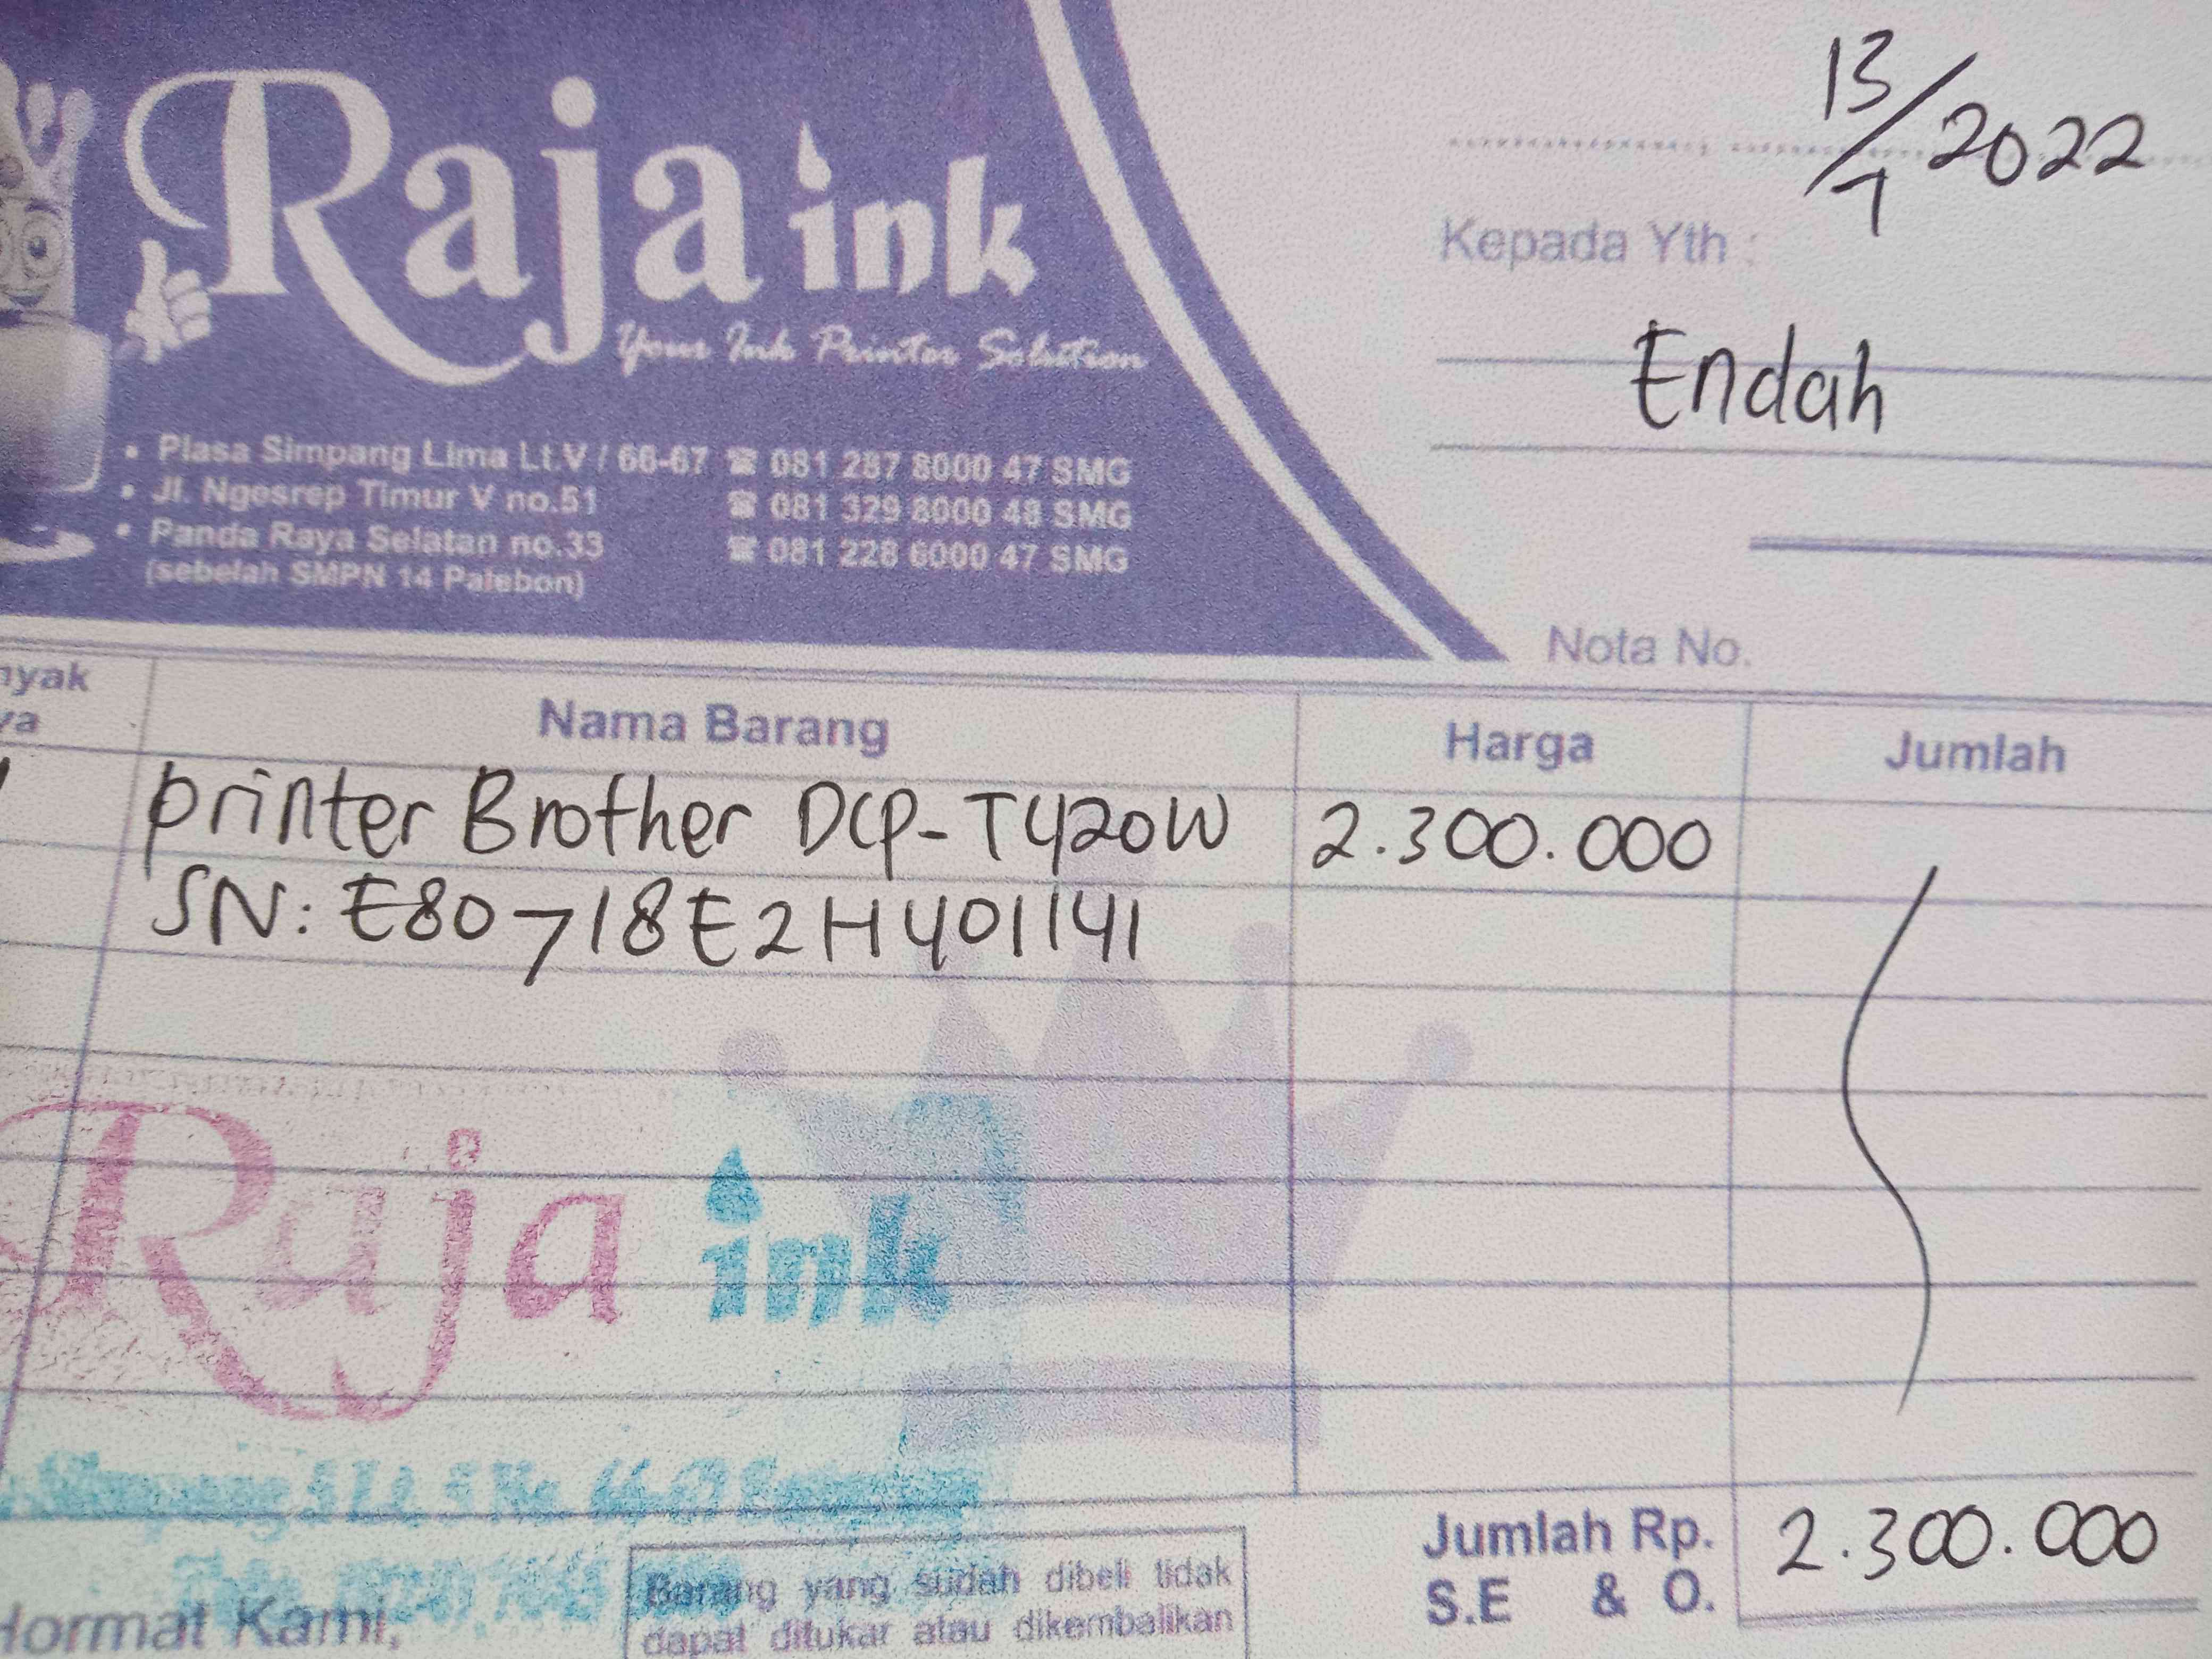 Raja ink
Your Ink Printer Solution
• Plasa Simpang Lima Lt.V / 66-67 ☎ 081 287 8000 47 SMG
• Jl. Ngesrep Timur V no.51 ☎ 081 329 8000 48 SMG
• Panda Raya Selatan no.33 ☎ 081 228 6000 47 SMG
(sebelah SMPN 14 Palebon)
13/7 2022
Kepada Yth :
Endah
Nota No.
nyak
ya
Nama Barang Harga Jumlah
1 printer Brother DCP-T420W 2.300.000
SN: E80718E2H401141
Raja ink
Jumlah Rp. 2.300.000
S.E & O.
Hormat Kami,
Barang yang sudah dibeli tidak
dapat ditukar atau dikembalikan